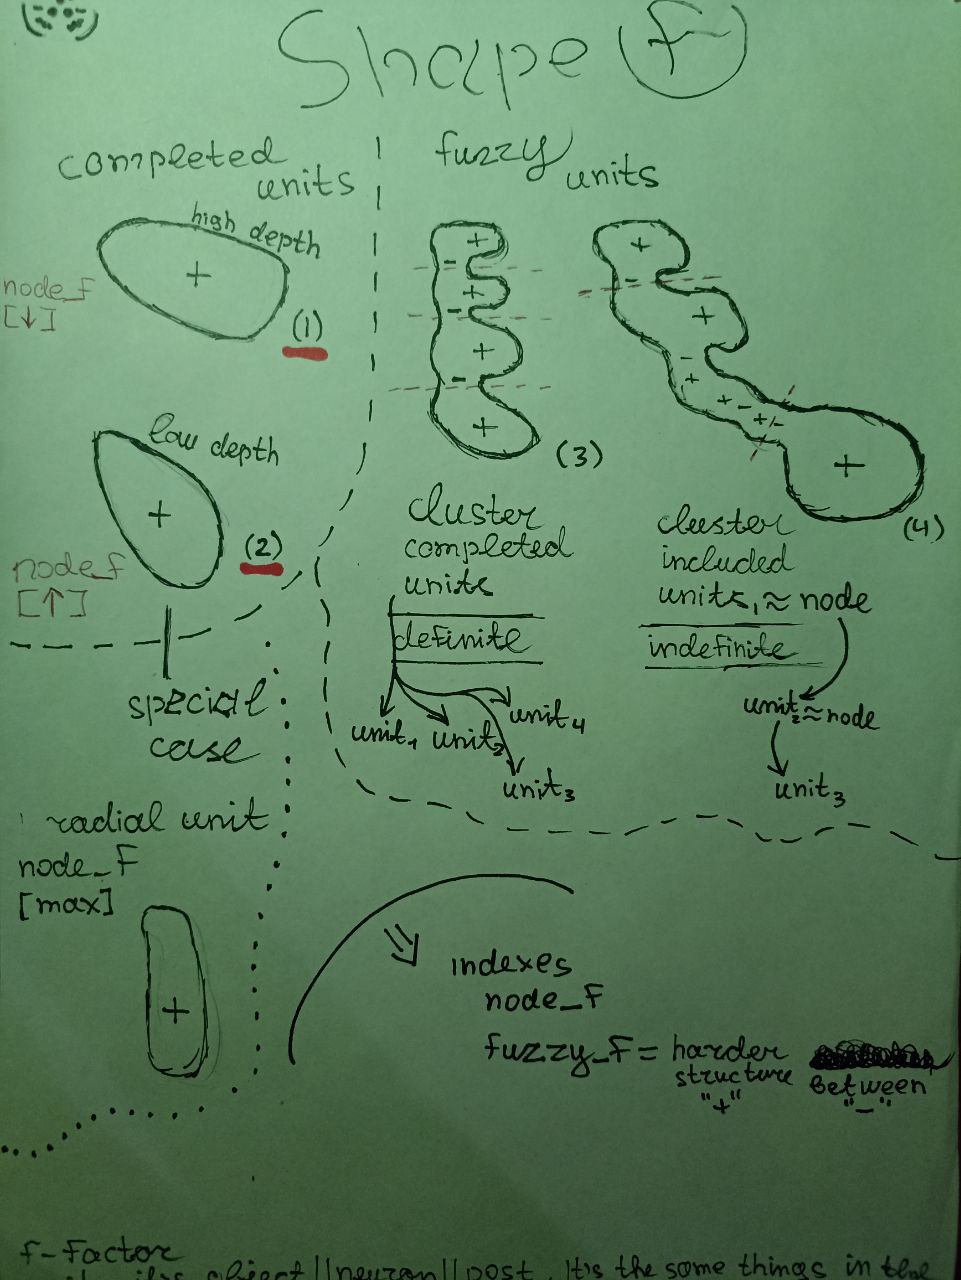 Shape F
completed
units
high depth
+
node_f
[↓]
(1)
low depth
+
(2)
node_f
[↑]
special
case
radial unit
node_F
[max]
+
fuzzy
units
+
-
+
-
+
-
+
(3)
cluster
completed
units
definite
unit₁
unit₂
unit₄
unit₃
+
-
+
-
+
+ -
+/-
+
(4)
cluster
included
units₁ ≈ node
indefinite
unit₂ ≈ node
unit₃
indexes
node_F
fuzzy_F = harder
structure between
"+" "-"
f-Factor
object || neuron || post. It's the some things in the